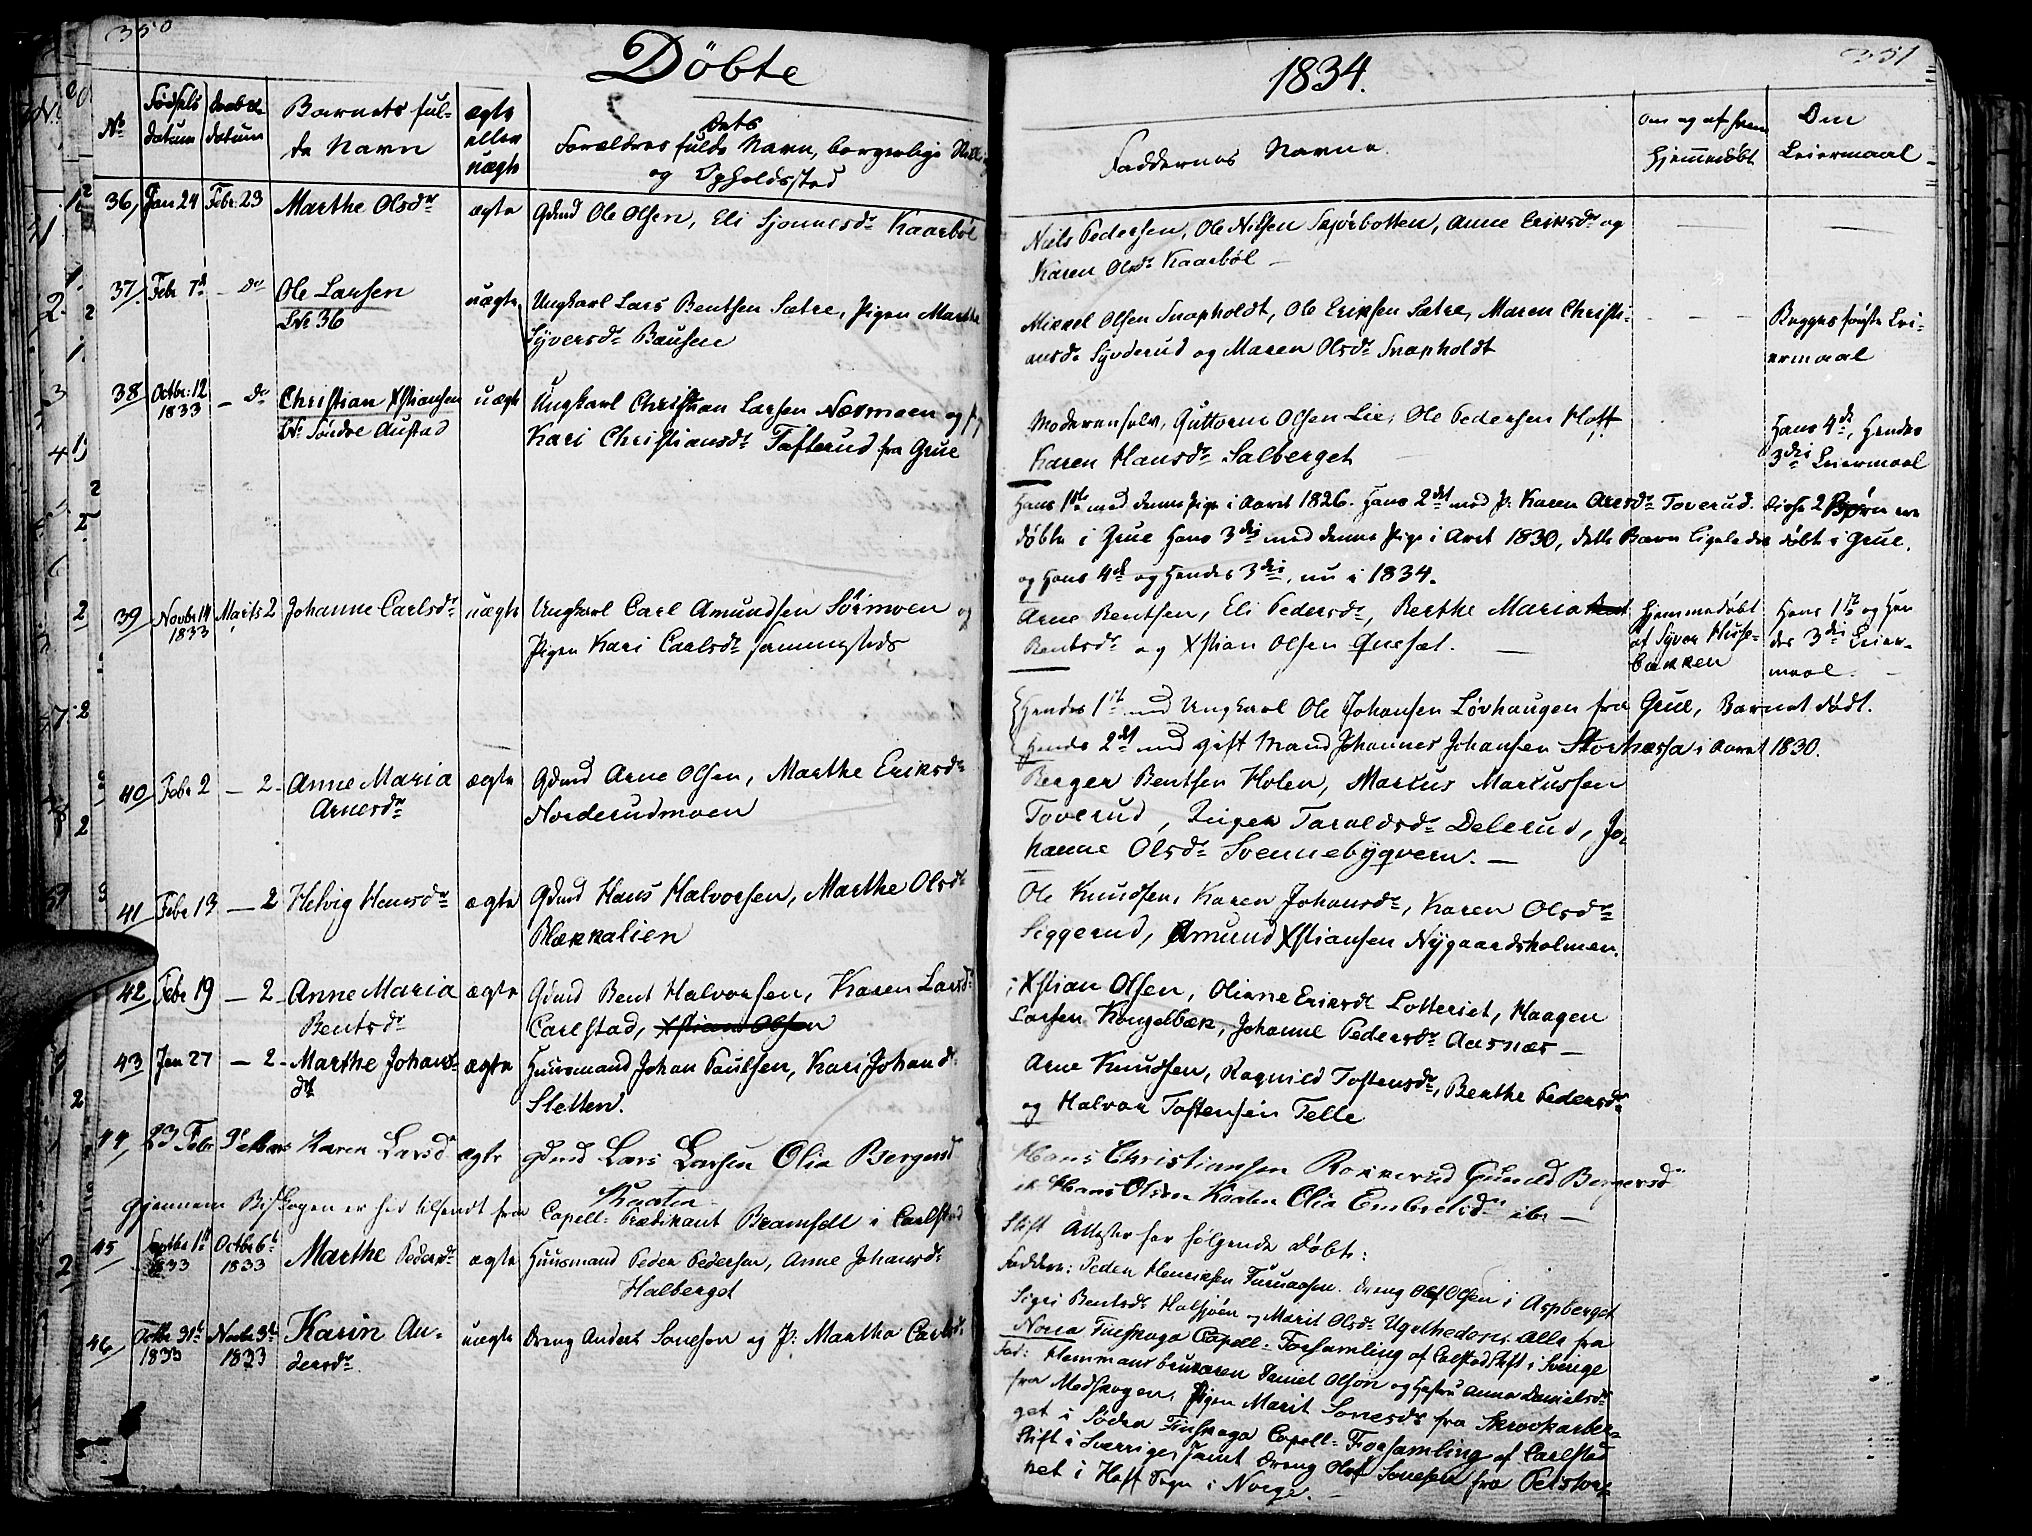 350
Döbte
No
Fødsels datum
Daabs datum
Barnets fulde Navn
ægte eller uægte
Forældres fulde Navn, borgerlige Still. og Opholdssted
36, Jan 24 Febr. 23 Marthe Olsdr ægte Gdmd Ole Olsen, Eli Sjonnesdr Kaarböl
37/ Febr 7d — Do Ole Larsen uægte Ungkarl Lars Bentsen Sætre, Pigen Marthe
Syversdr Bausen
38 Octbr. 12 1833 — Do Christian Xstiansen uægte Ungkarl Christian Larsen Næsmoen og P.
Søndre Austad Kari Christiansdr Tæfterud fra Grue
39 Novbr 14 1833 Marts 2 Johanne Carlsdr uægte Ungkarl Carl Amundsen Sörmoen og
Pigen Kari Carlsdr sammesteds
40 Febr 2 — 2 Anne Maria Arnesdr ægte Gdmd Arne Olsen, Marthe Eriksdr
Norderudmoen
41 Febr 13 — 2 Helvig Hansdr ægte Gdmd Hans Halvorsen, Marthe Olsdr
Blækkalien
42 Febr 19 — 2 Anne Maria Bentsdr ægte Gdmd Bent Halvorsen, Karen Larsdr
Carlstad, Xstian Olsen
43 Jan 27 — 2 Marthe Johansdr ægte Huusmand Johan Paulsen, Kari Johansd.
Sletten.
44 23 Febr Karen Larsd ægte Gdmd Lars Larsen Olia Bergersd
Kaaten
Gjennem Bispen er hid tilsendt fra Capell. Prædikant Bramsell i Carlstad
45 Septbr 1 1833 Octbr 6t 1833 Marthe Pedersdr ægte Huusmand Peder Pedersen, Anne Johansdr
Halberget
46 Octbr 31t 1833 Novbr 3t 1833 Karin Andersdr uægte Dreng Anders Sonesen og P. Martha Carlsd.
1834.
351
Faddernes Navne.
om og af hvem hjemmedöbt
Om Leiermaal
Niels Pedersen, Ole Nilsen Skjörbotten, Anne Eriksdr og
Karen Olsdr Kaarböl —
Mikkel Olsen Snapholdt, Ole Eriksen Sætre, Maren Christi-
ansdr Syvderud og Maren Olsdr Snapholdt
Begges første Lei-
ermaal
Moderen selv, Guttorm Olsen Lie, Ole Pedersen Hoff
Karen Hansdr Salberget
Hans 4de, Hendes
3die Leiermaal
Hans 1ste med denne Pige i Aaret 1826. Hans 2det med P. Karen Aresdr Toverud. Disse 2 Børn ere
döbte i Grue Hans 3die med denne Pige i Aaret 1830, dette Barn ligeledes döbt i Grue.
og Hans 4de og Hendes 3die, nu i 1834.
Arne Bentsen, Eli Pedersdr, Berthe Maria
Bentsdr og Xstian Olsen Quesæt. —
Hjemmedöbt
af Syver Husse-
bakken
Hans 1ste og Hen
des 3die Leier-
maal.
Hendes 1ste med Ungkarl Ole Johansen Lövhaugen fra Grue, Barnet födt.
Hendes 2det med gift Mand Johannes Johansen Storhæsa i Aaret 1830.
Berger Bentsen Holen, Markus Markussen
Toverud, Inger Taraldsdr Delerud, Jo-
hanne Olsdr Svennebyqvern. —
Ole Knudsen, Karen Johansdr, Karen Olsdr
Siggerud, Amund Xstiansen Nygaardsholmen.
Xstian Olsen, Oliane Eriksdr Lotteriet, Haagen
Larsen Kongelbæk, Johanne Pedersdr Aasnæs —
Arne Knudsen, Ragnild Tostensdr, Berthe Pedersdr
og Halvor Tostensen Telle
Hans Christiansen Rokkerud Gunild Bergersd
Hans Olsen Kaaten Olia Embretsdr ib —
Stift Attester for følgende döbte:
Faddere: Peder Henriksen Furuaasen. Dreng Olof Olsen i Aspberget
Sigri Bentsdr Halsjöen og Marit Olsdr Ugelheden. Alle fra
Nora Finskoga Capell. Forsamling af Carlstad Stift i Sverige
Fad: Hemmansbrukaren Daniel Olson og Hustru Anna Danielsdr
fra Medskogen, Pigen Marit Sonesdr fra Skrockarber-
get i Södra Finskoga Capell. Forsamling af Carlstad
Stift i Sverrige, samt Dreng Olof Sonesen fra Peistor-
pet i Hoff Sogn i Norge. —